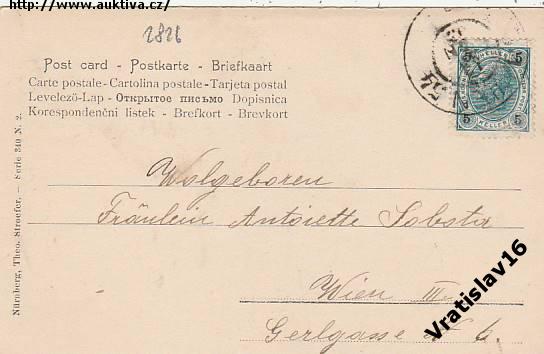 http://www.auktiva.cz/
2826
Post card - Postkarte - Briefkaart
Carte postale - Cartolina postale - Tarjeta postal
Levelező-Lap - Открытое письмо Dopisnica
Korespondenční listek - Brefkort - Brevkort
5 5
5 5
HELLER
Wolgeboren
Fräulein Antoiette Sobota
Wien III
Gerlgasse N 6.
Nürnberg, Theo. Stroefer. — Serie 340 N. 2.
Vratislav16